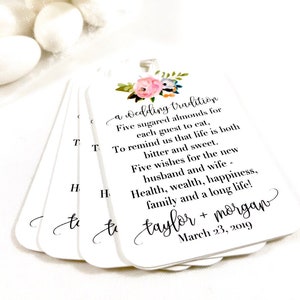 a wedding tradition
Five sugared almonds for
each guest to eat.
To remind us that life is both
bitter and sweet.
Five wishes for the new
husband and wife -
Health, wealth, happiness,
family and a long life!
taylor + morgan
March 23, 2019